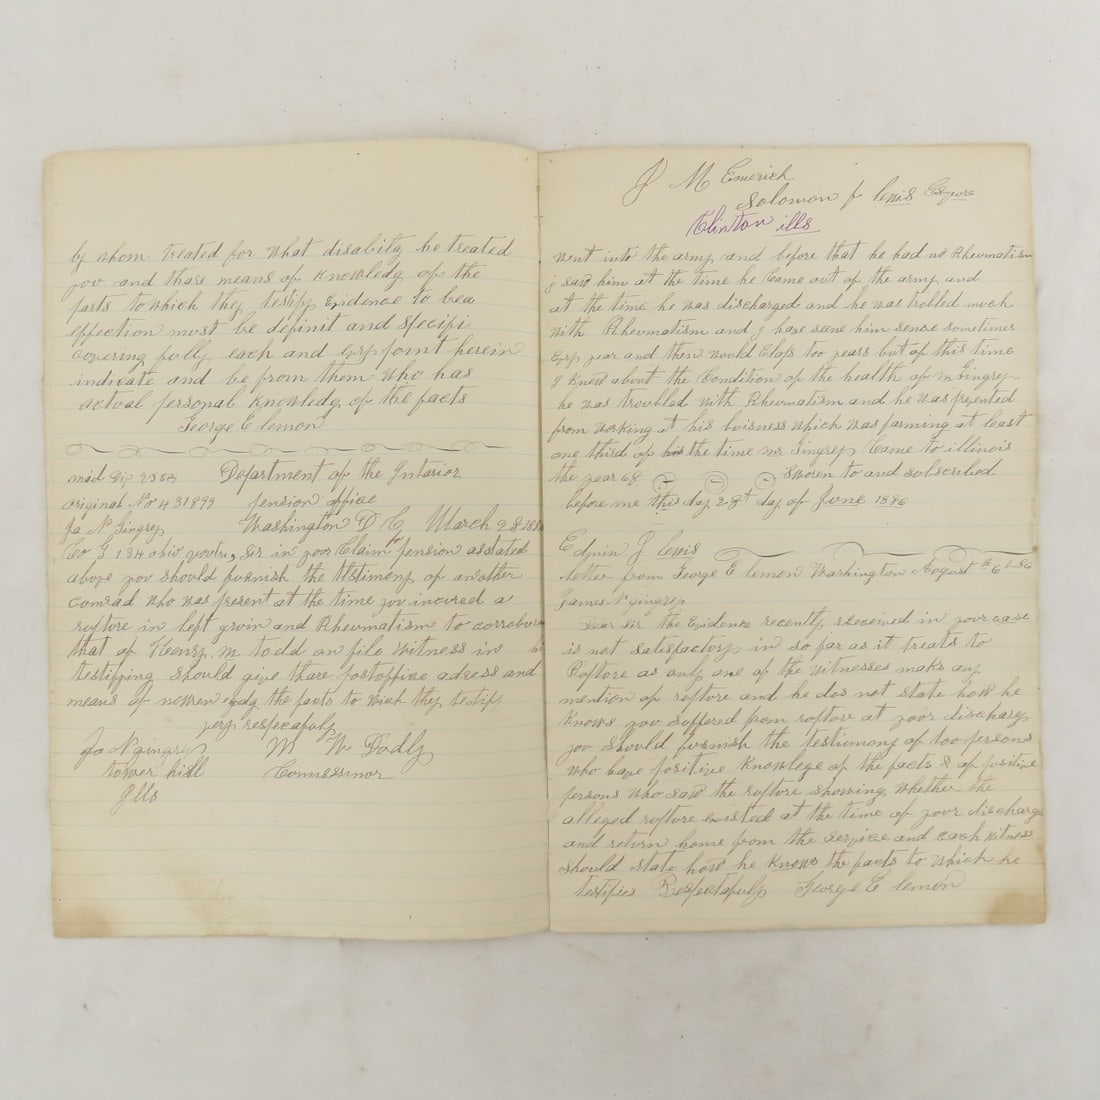 by whom treated for what disability he treated
you and thare means of knowledg of the
facts to which they testify Evidence to bea
effection must be definit and specifi
covering fully each and Evry point herein
indicate and be from them who has
actual personal knowledg of the facts
George E lemon
mid Div Department of the Interior
original No 431899 pension office
Ja N Gingrey Washington D C March 28 188
Co G 134 ohio youtre, Sir in your Claim for pension as stated
above you should furnish the testimony of another
comrad who was present at the time you incured a
rupture in left groin and Rheumatism to corrobora
that of Henry M todd on file witness in
testifying should give thare postoffice adress and
means of nowen the facts to wich they testify
very respecafuly
Ja N gingrey M W Dudly
tower hill Comissinor
Ills
J M Emerich
Solomon f lewis Esquire
Clinton ills
went into the army and before that he had no Rheumatism
j saw him at the time he Came out of the army and
at the time he was discharged and he was trobled much
with Rheumatism and j have seene him sence sometimes
Evry year and then would Elaps too years but of this time
J knew about the Condition of the health of mr Gingrey
he was troubled with Rheumatism and he was prevented
from working at his buisness which was farming at least
one third of the time mr Gingrey Came to illinois
the year 68 Sworen to and subscribed
before me this day 28t day of June 1886
Edwin J lewis
letter from George E lemon Washington August 6 1-86
James N gingrey
Dear Sir the Evidence recently received in your case
is not satisfactory in so far as it treats to
Rupture as only one of the witnesses makes any
mention of rupture and he dos not state how he
knows you suffered from rupture at your discharg
you should furnish the testimony of too persons
who have positive knowlege of the facts & of positive
persons who saw the rupture showing whether the
alleged rupture existed at the time of your discharge
and return home from the service and each witness
should state how he knows the facts to which he
testifies Respectafuly George E lemon